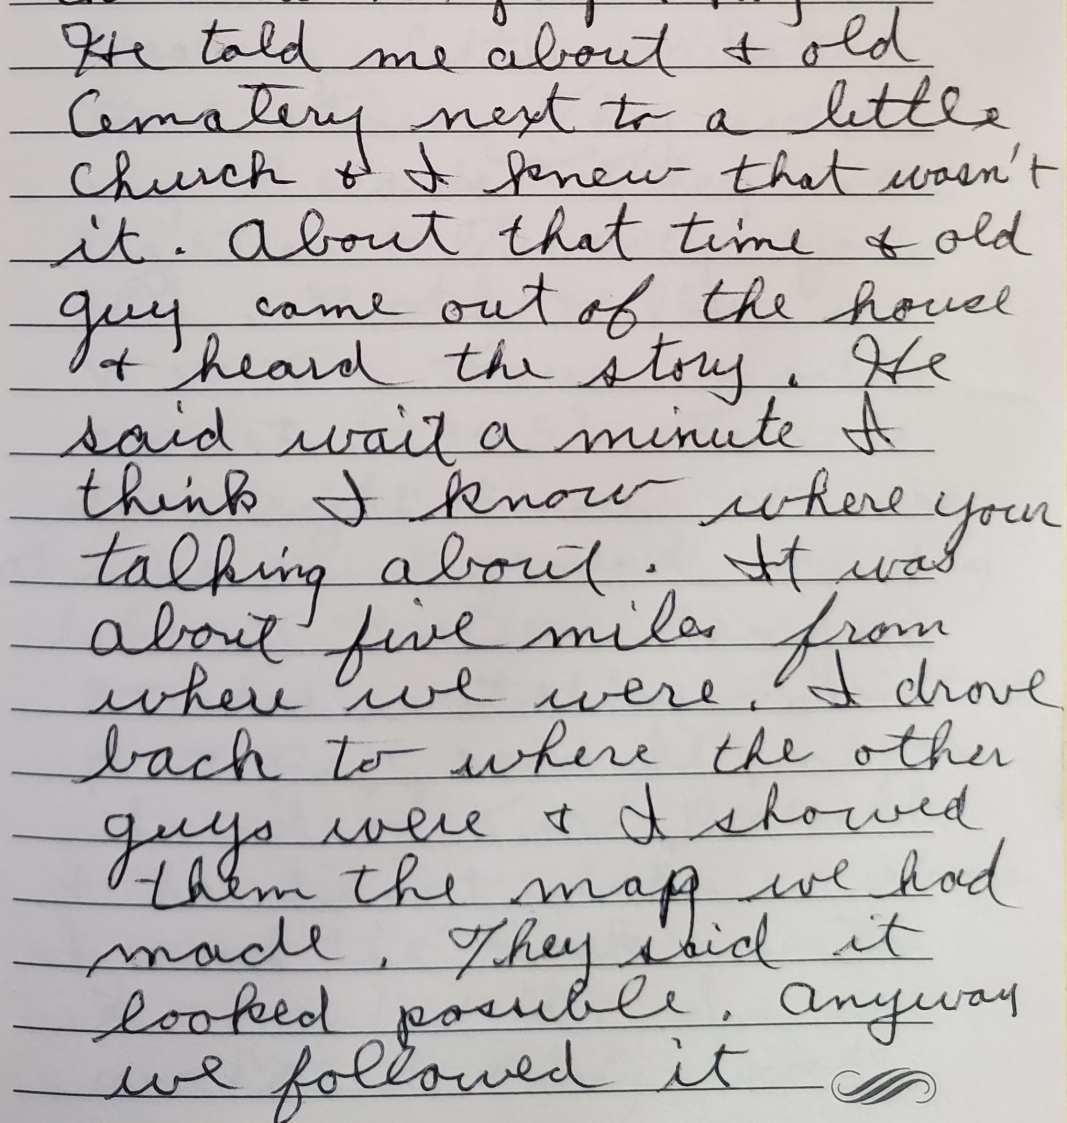 He told me about & old
Cematery next to a little
church & I knew that wasn't
it. About that time & old
guy came out of the house
& heard the story. He
said wait a minute I
think I know where your
talking about. It was
about five miles from
where we were. I drove
back to where the other
guys were & I showed
them the map we had
made. They said it
looked possible. Anyway
we followed it